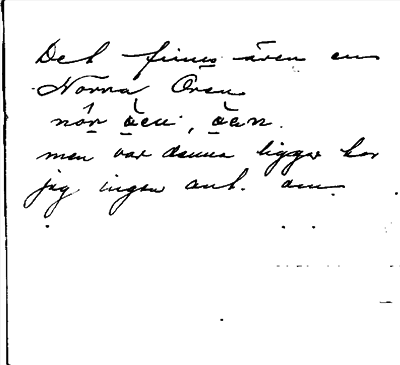 Det finns även en
Norra Ören
nôr ö̀en, ö̀en.
men var denna ligger har
jag ingen ant. om.